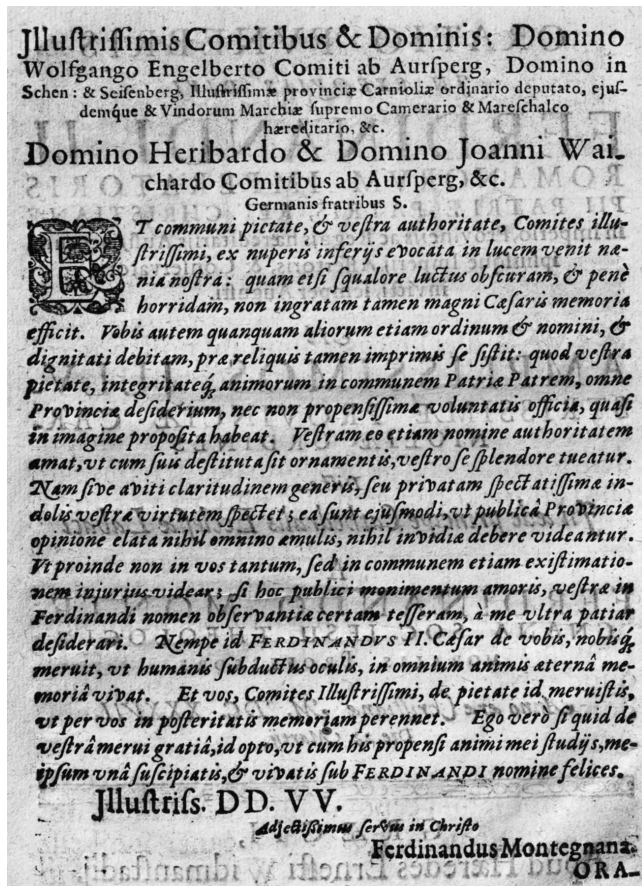 Jlluſtriſſimis Comitibus & Dominis: Domino
Wolfgango Engelberto Comiti ab Aurſperg, Domino in
Schen: & Seiſenberg, Illuſtriſſimæ provinciæ Carnioliæ ordinario deputato, ejuſ-
demq́ue & Vindorum Marchiæ ſupremo Camerario & Mareſchalco
hæreditario, &c.
Domino Heribardo & Domino Joanni Wai-
chardo Comitibus ab Aurſperg, &c.
Germanis fratribus S.
ET communi pietate, & veſtra authoritate, Comites illu-
ſtriſſimi, ex nuperis inferijs evocata in lucem venit næ-
nia noſtra: quam etſi ſqualore luctus obſcuram, & penè
horridam, non ingratam tamen magni Cæſaris memoria
efficit. Vobis autem quanquam aliorum etiam ordinum & nomini, &
dignitati debitam, præ reliquis tamen imprimis ſe ſiſtit: quod veſtra
pietate, integritateq́, animorum in communem Patriæ Patrem, omne
Provinciæ deſiderium, nec non propenſiſſimæ voluntatis officia, quaſi
in imagine propoſita habeat. Veſtram eo etiam nomine authoritatem
amat, vt cum ſuis deſtituta ſit ornamentis, veſtro ſe ſplendore tueatur.
Nam ſive aviti claritudinem generis, ſeu privatam ſpectatiſſimæ in-
dolis veſtræ virtutem ſpectet; ea ſunt ejuſmodi, vt publicâ Provinciæ
opinione elata nihil omnino æmulis, nihil invidiæ debere videantur.
Vt proinde non in vos tantum, ſed in communem etiam exiſtimatio-
nem injurius videar; ſi hoc publici monimentum amoris, veſtræ in
Ferdinandi nomen obſervantiæ certam teſſeram, à me vltra patiar
deſiderari. Nempe id FERDINANDVS II. Cæſar de vobis, nobisq́,
meruit, vt humanis ſubductus oculis, in omnium animis æternâ me-
moriâ vivat. Et vos, Comites Illuſtriſſimi, de pietate id meruiſtis,
vt per vos in poſteritatis memoriam perennet. Ego verò ſi quid de
veſtrâ merui gratiâ, id opto, vt cum his propenſi animi mei ſtudijs, me-
ipſum vnâ ſuſcipiatis, & vivatis ſub FERDINANDI nomine felices.
Jlluſtriſſ. DD. VV.
Adjectiſſimus ſervus in Chriſto
Ferdinandus Montegnana.
ORA-